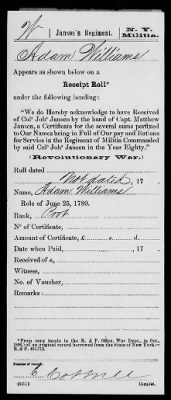 W | Jansen's Regiment. | N.Y. Militia.
Adam Williams
Appears as shown below on a
Receipt Roll*
under the following heading:
"We do Hereby acknowledge to have Received
of Colº Johº Jansen by the hand of Capt. Matthew
Jansen, a Certificate for the several sums perfixed
to our Names being in Full of Our pay and Rations
for Service in the Regiment of Militia Commanded
by said Colº Johº Jansen in the Year Eighty."
(Revolutionary War.)
Roll dated Not dated, 17
Name, Adam Williams
Role of June 25, 1780.
Rank,
Nº of Certificate,
Amount of Certificate, £ s. d.
Date when Paid, , 17
Received of a,
Witness,
No. of Voucher,
Remarks:
*From copy made in the R. & P. Office, War Dept., in Oct.,
of an original record borrowed from the State of New York.—
R. & P.
Copyist.